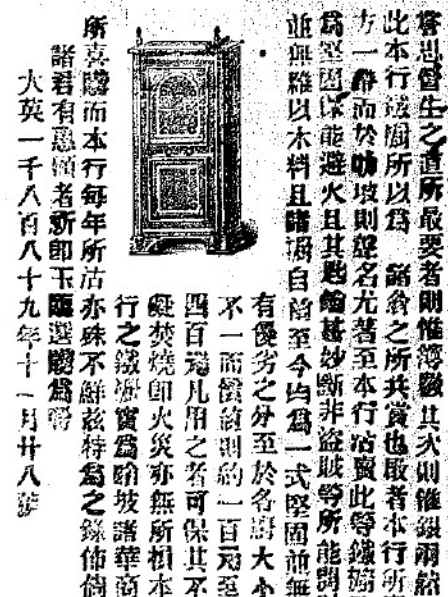 嘗思營生之道所最要者則惟 其次則惟銀兩
此本行 所以爲 諸翁之所共賞也啟者本行所
方一辟而於叻坡則 名尤著至本行沽賣此等鐵
爲堅固 能避火且其匙 甚妙斷非盜賊等所能開
並無雜以木料且諸 自前至今均爲一式堅固並無
有優劣之分至於名 大小
不一而價值則約一百元至
四百元凡用之者可保其不
礙焚燒即火災亦無所損本
行之鐵 實爲叻坡諸華商
所喜 而本行每年所沽亦殊不鮮茲特爲之錄佈倘
諸君有 者祈即玉臨選 爲
大英一千八百八十九年十一月廿八號